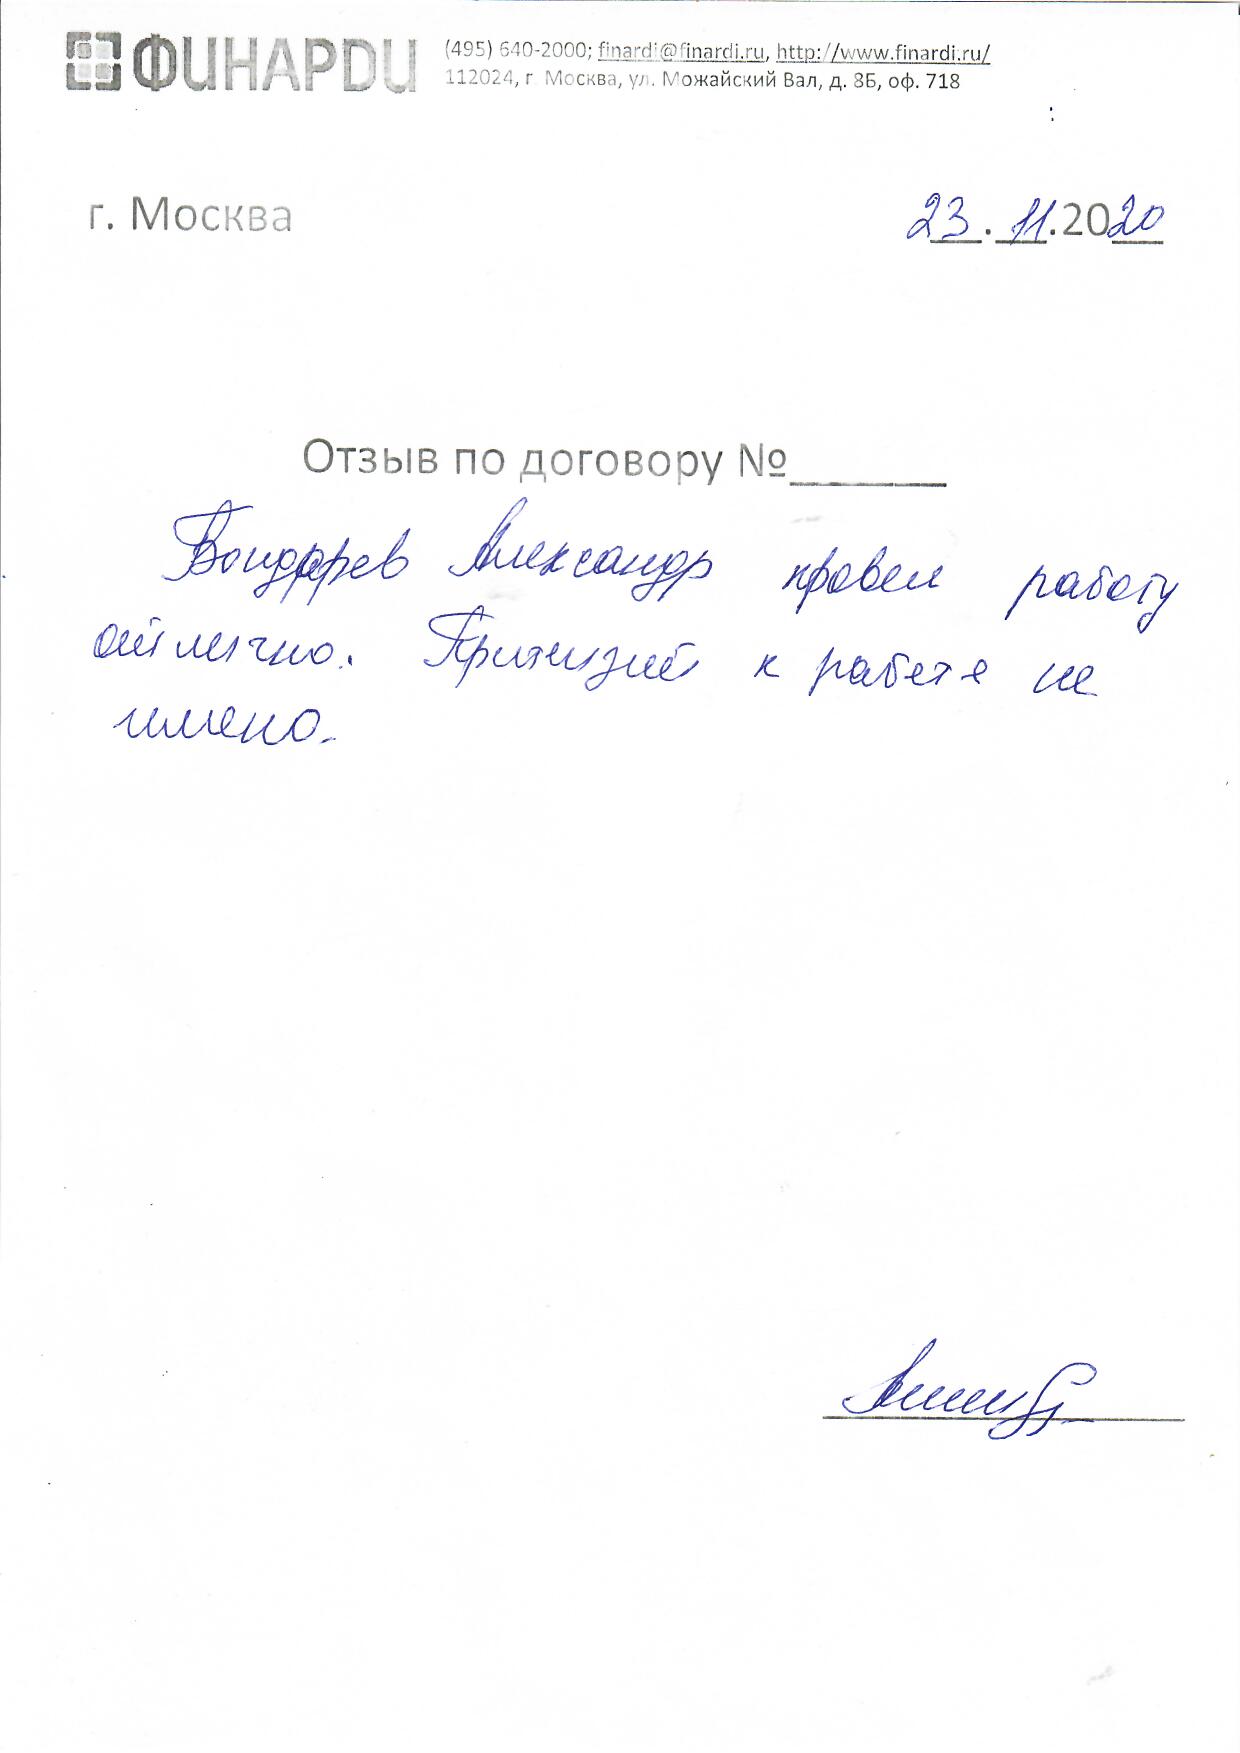 ФИНАРДИ
(495) 640-2000; finardi@finardi.ru, http://www.finardi.ru/
112024, г. Москва, ул. Можайский Вал, д. 8Б, оф. 718
г. Москва
23.11.2020
Отзыв по договору №______
Бондарев Александр провел работу
отлично. Притизий к работе не
имено.